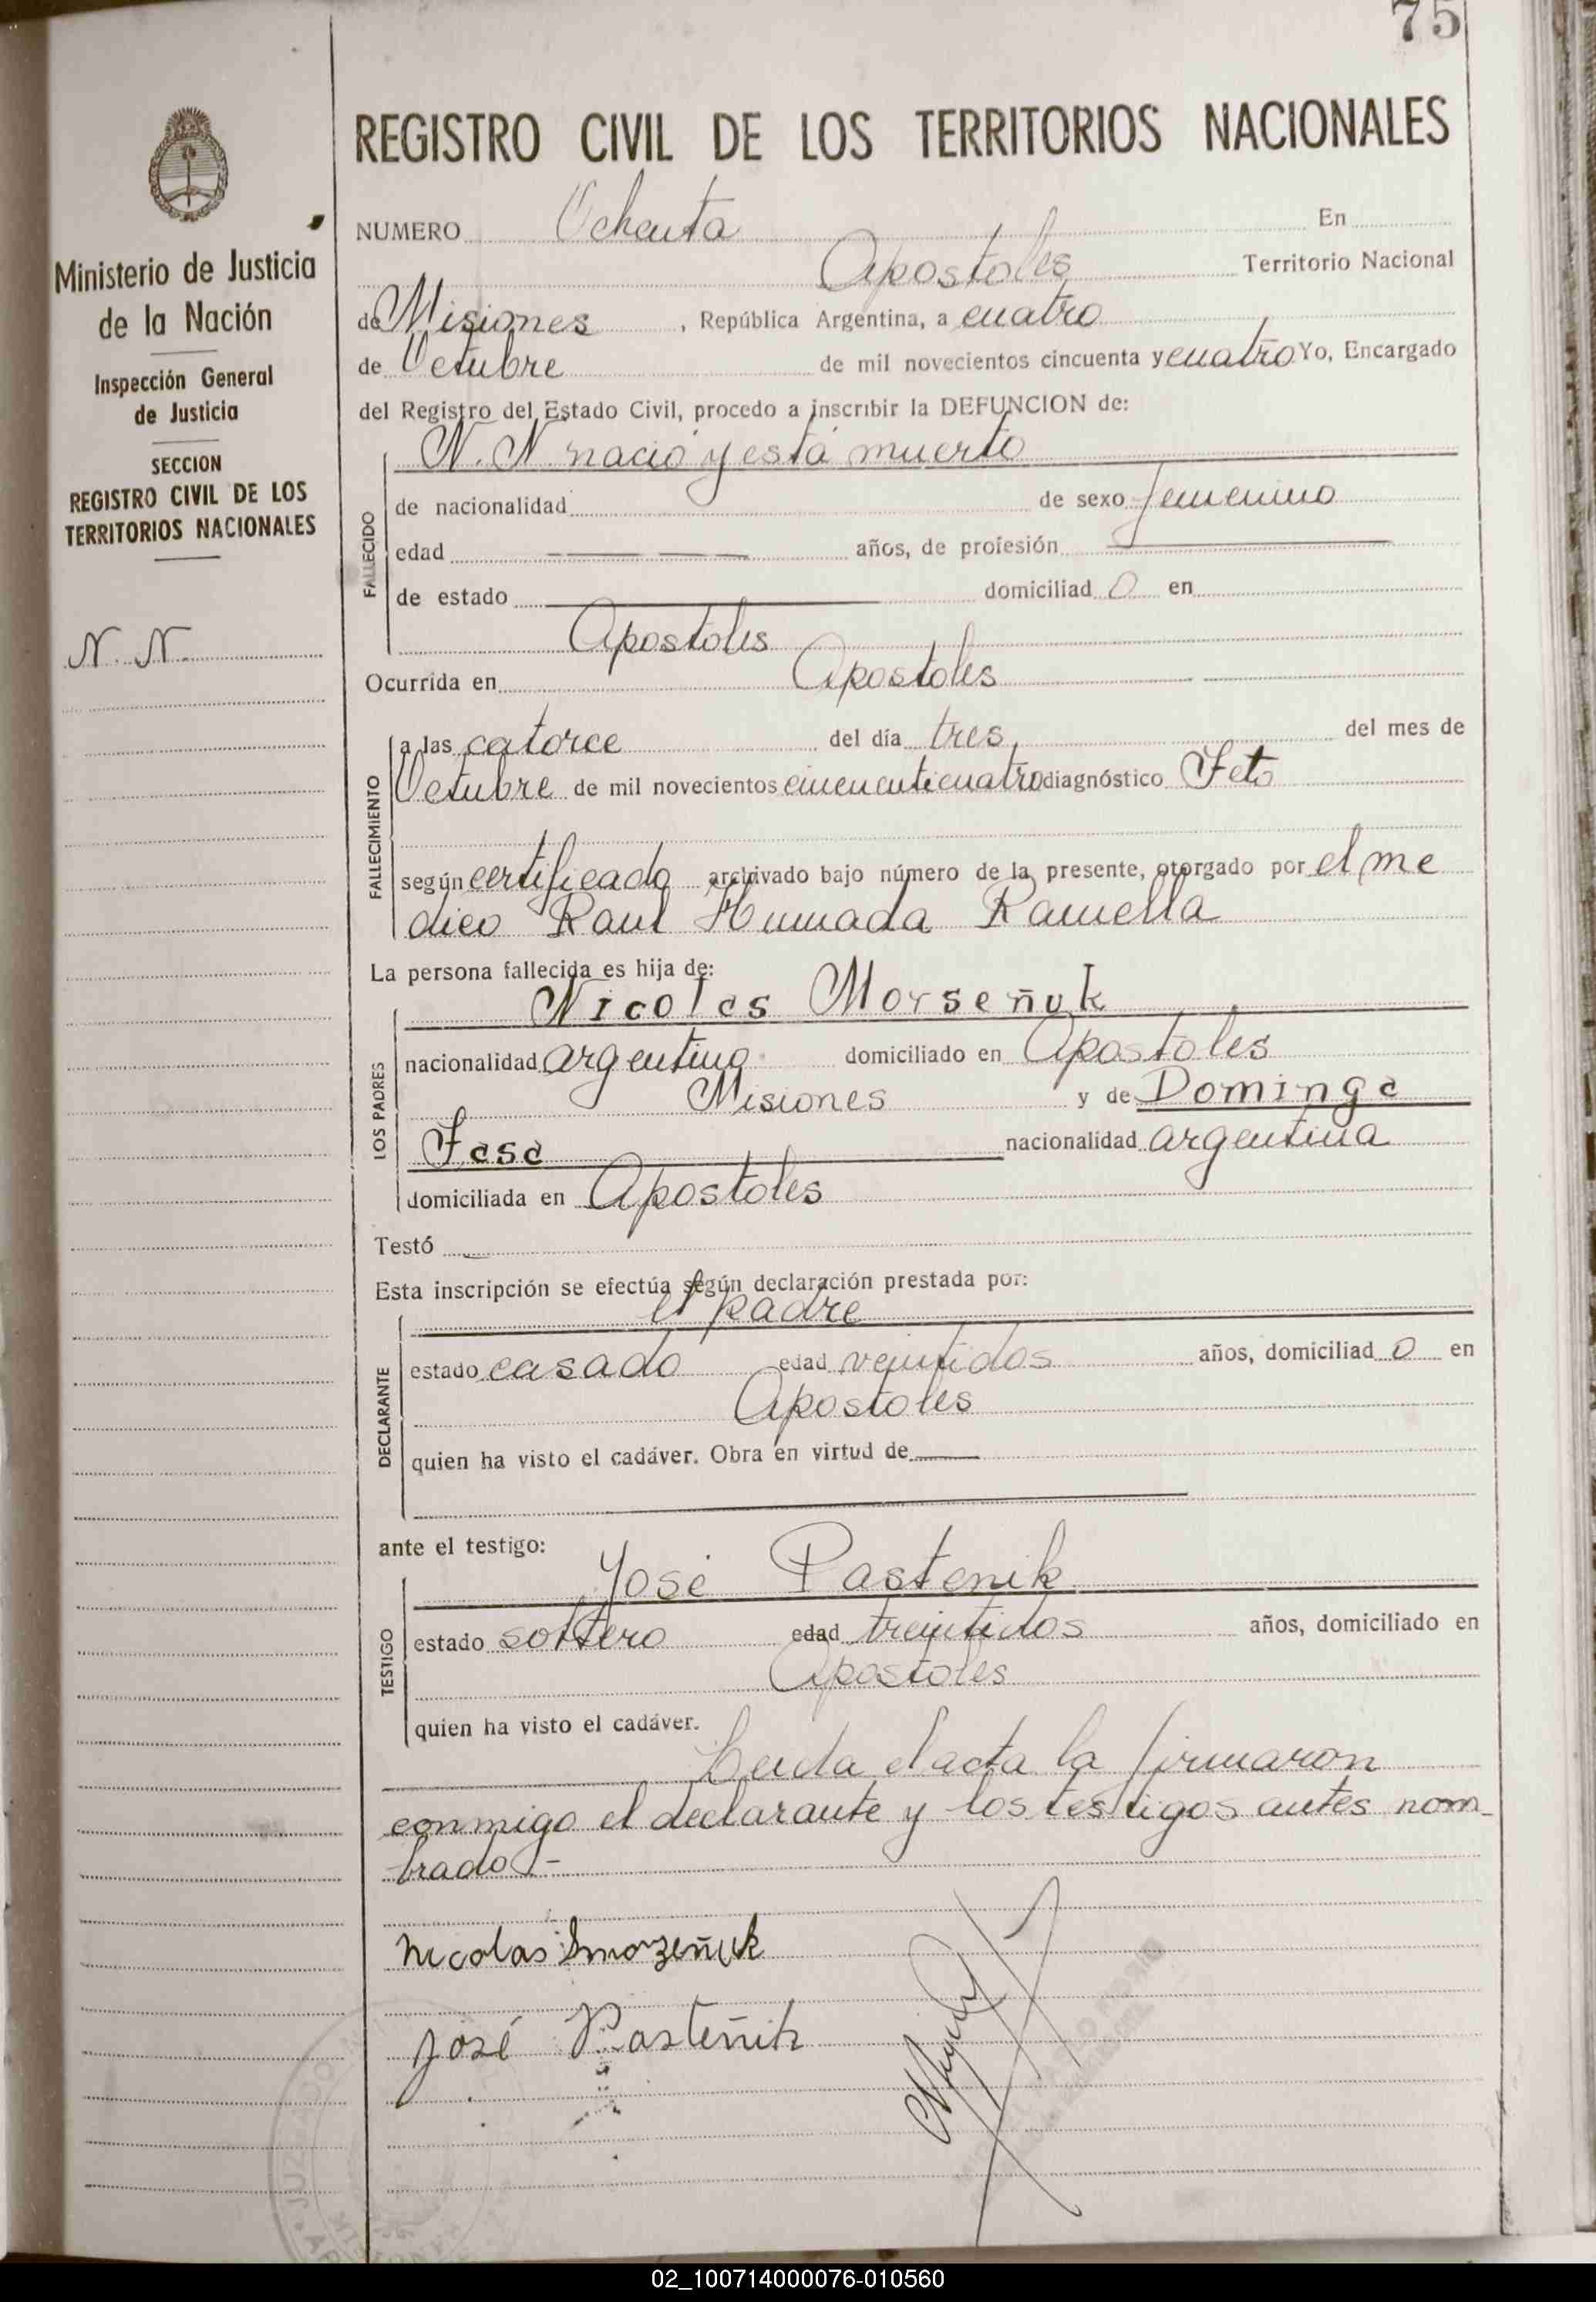 75
REGISTRO CIVIL DE LOS TERRITORIOS NACIONALES
Ministerio de Justicia
de la Nación
Inspección General
de Justicia
SECCION
REGISTRO CIVIL DE LOS
TERRITORIOS NACIONALES
N. N.
NUMERO Ochenta En
Apostoles Territorio Nacional
de Misiones, República Argentina, a cuatro
de Octubre de mil novecientos cincuenta y cuatro Yo, Encargado
del Registro del Estado Civil, procedo a inscribir la DEFUNCION de:
N. N nació y está muerto
FALLECIDO
de nacionalidad de sexo femenino
edad años, de profesión
de estado domiciliad o en
Apostoles
Ocurrida en Apostoles
FALLECIMIENTO
a las catorce del día tres del mes de
Octubre de mil novecientos cincuenticuatro diagnóstico Feto
según certificado archivado bajo número de la presente, otorgado por el me
dico Raul Humada Ramella
La persona fallecida es hija de:
Nicolas Morseñuk
LOS PADRES
nacionalidad argentino domiciliado en Apostoles
Misiones y de Dominga
Fasa nacionalidad argentina
domiciliada en Apostoles
Testó
Esta inscripción se efectúa según declaración prestada por:
el padre
DECLARANTE
estado casado edad veintidos años, domiciliad o en
Apostoles
quien ha visto el cadáver. Obra en virtud de
ante el testigo:
José Pastenik
TESTIGO
estado soltero edad treintidos años, domiciliado en
Apostoles
quien ha visto el cadáver.
Leida el acta la firmaron
conmigo el declarante y los testigos antes nom_
brado -
Nicolas Smozeñuk
José Pasteñik
02_100714000076-010560